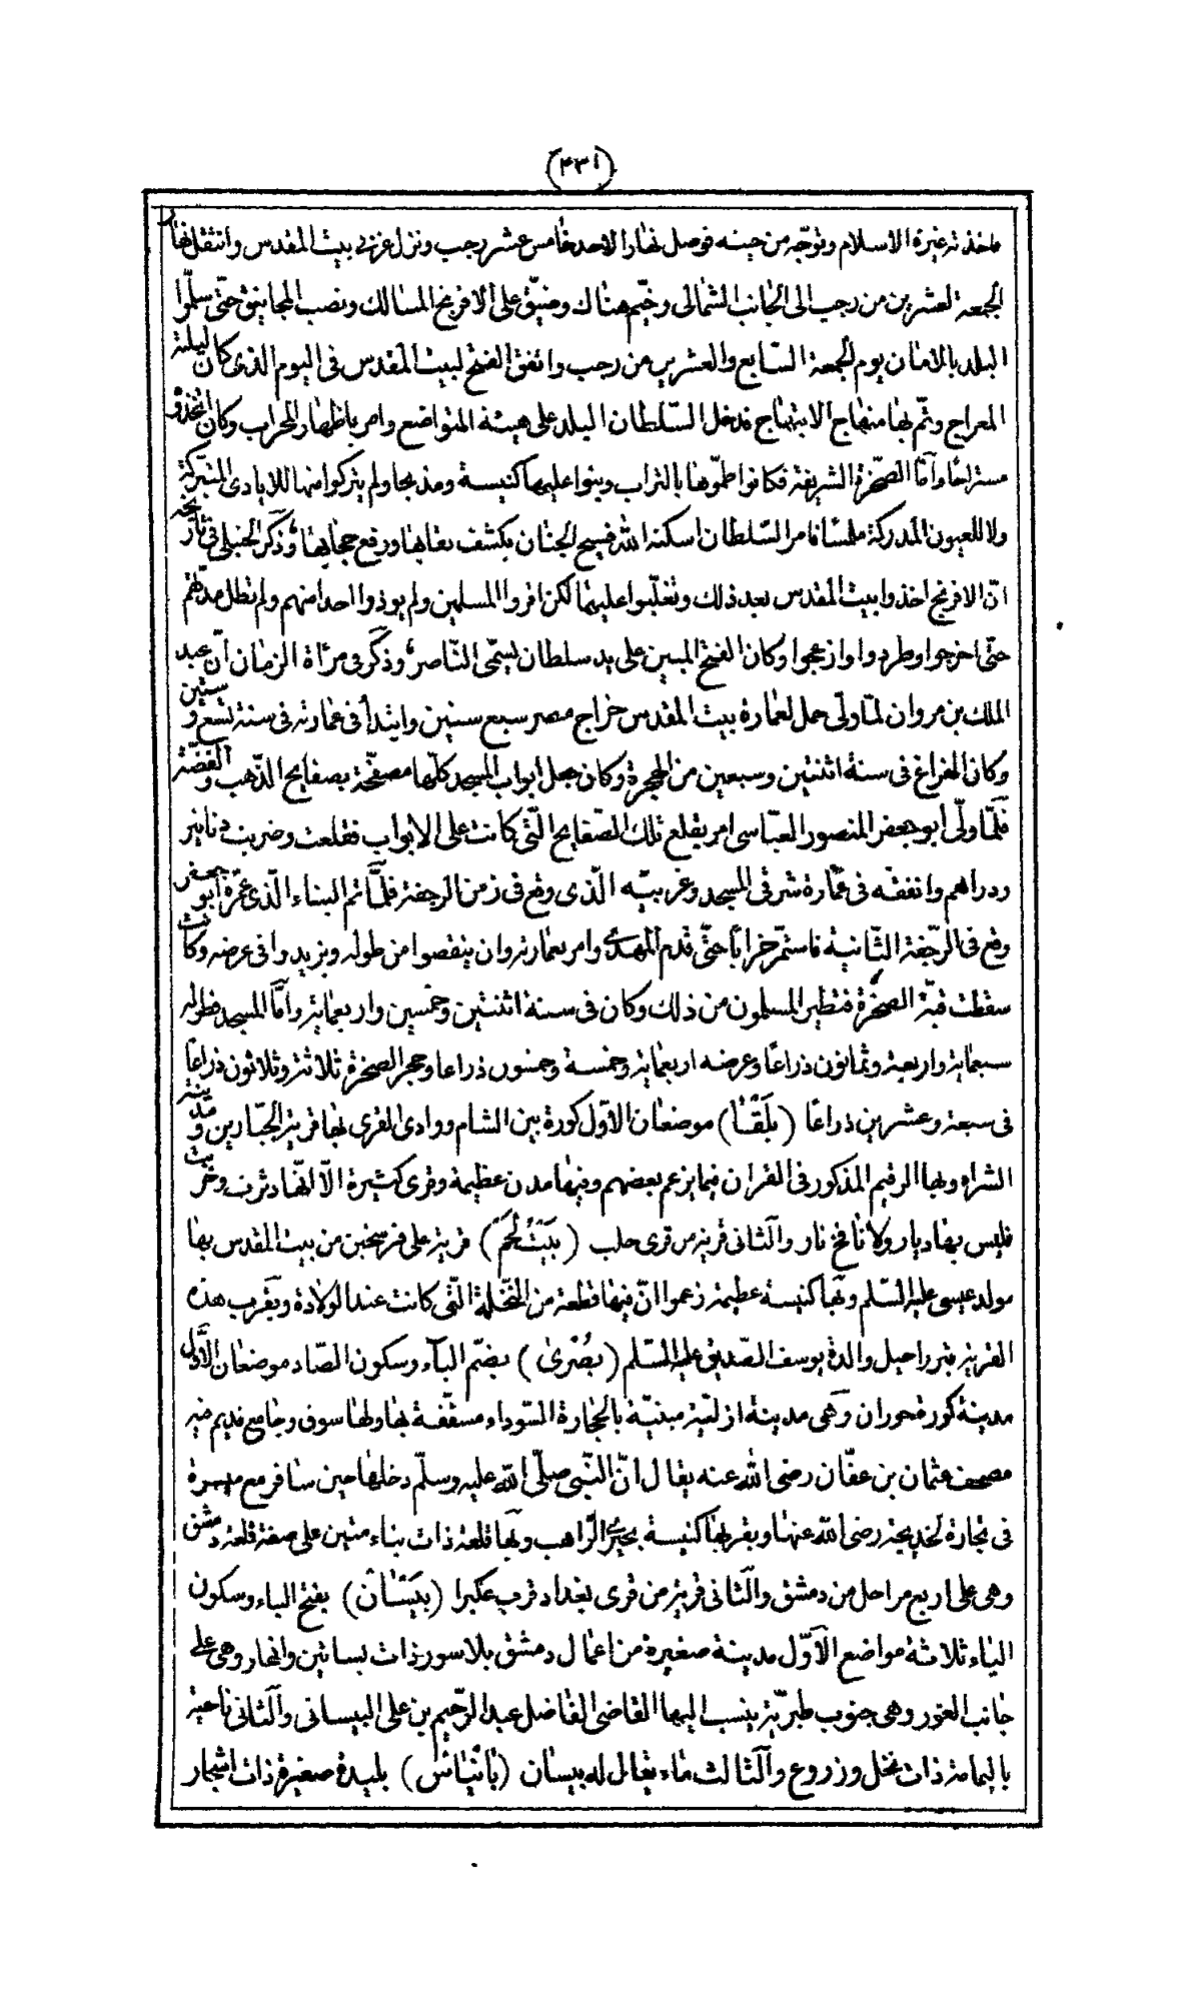 (٤٣١)
فاخذته غيرة الاسلام وتوجّه من حينه فوصل نهار الاحد خامس عشر رجب ونزل غربى بيت المقدس وانتقل نهار
الجمعة لعشرين من رجب الى الجانب الشمالى وخيّم هناك وضيّق على الافرنج المسالك ونصب المجانيق حتى سلّموا
البلد بالامان يوم الجمعة السّابع والعشرين من رجب واتفق الفتح لبيت المقدس فى اليوم الذى كان ليلته
المعراج وتمّ بها منهاج الابتهاج فدخل السّلطان البلد على هيئة المتواضع وامر باظهار المحراب وكان اتخذوه
مستراحًا وامّا الصّخرة الشريفة فكانوا طمّوها بالتراب وبنوا عليها كنيسة ومذبحا ولم يتركوا منها للايادى المتبركة
ولا للعيون المدركة ملمسًا فامر السّلطان اسكنه الله فسيح الجنان بكشف نقابها ورفع حجابها وذكر الحنبلى فى تاريخه
انّ الافرنج اخذوا بيت المقدس بعد ذلك وتغلّبوا عليها لكن اقروا المسلمين ولم يوذوا احدا منهم ولم تطل مدّتهم
حتى اخرجوا وطردوا وازعجوا وكان الفتح المبين على يد سلطان يسمّى النّاصر وذكر فى مرآة الزمان انّ عبد
الملك بن مروان لمّا ولى حمل لعمارة بيت المقدس خراج مصر سبع سنين وابتدأ فى عمارته فى سنة تسع وستين
وكان الفراغ فى سنة اثنتين وسبعين من الهجرة وكان جعل ابواب المسجد كلّها مصفّحة بصفايح الذّهب والفضّة
فلمّا ولّى ابو جعفر المنصور العبّاسى امر بقلع تلك الصّفايح الّتى كانت على الابواب فقلعت وضربت دنانير
ودراهم وانفقه فى عمارة شرقى المسجد وغربيّه الّذى وقع فى زمن الرجفة فلمّا تم البناء الّذى عمّره ابو جعفر
وقع فى الرّجفة الثّانية فاستمرّ خرابًا حتّى قدم المهدى وامر بعمارته وان ينقصوا من طوله ويزيدوا فى عرضه وكانت
سقطت قبّة الصخرة فتطير المسلمون من ذلك وكان فى سنة اثنتين وخمسين واربعماية وامّا المسجد فطوله
سبعماية واربعة وثمانون ذراعًا وعرضه اربعماية وخمسة وخمسون ذراعا وحجر الصخرة ثلاثة وثلاثون ذراعًا
فى سبعة وعشرين ذراعًا (بلقا) موضعان الاوّل كورة بين الشام ووادى القرى بها قرية الجبّارين ومدينة
الشراه وبها الرقيم المذكور فى القران فيما يزعم بعضهم وفيها مدن عظيمة وقرى كثيرة الّا انّها دثرت وخربت
فليس بها ديار ولا نافخ نار والثانى قرية من قرى حلب (بيت لحم) قرية على فرسخين من بيت المقدس بها
مولد عيسى عليه السّلم وبها كنيسة عظيمة زعموا انّ فيها قطعة من النخلة الّتى كانت عند الولادة وبقرب هذه
القرية قبر راحيل والدة يوسف الصّديق عليه السّلم (بصرى) بضمّ البآء وسكون الصّاد موضعان الاوّل
مدينة كورة حوران وهى مدينة ازليّة مبنيّة بالحجارة السّوداء مسقّفة بها ولها سوق وجامع قديم فيه
مصحف عثمان بن عفّان رضى الله عنه يقال انّ النّبى صلّى الله عليه وسلّم دخلها حين سافر مع ميسرة
فى تجارة لخديجة رضى الله عنها وبقربها كنيسة بحيرى الرّاهب وبها قلعة ذات بناء متين على صفة قلعة دمشق
وهى على اربع مراحل من دمشق والثانى قرية من قرى بغداد قرب عكبرا (بيسان) بفتح الباء وسكون
الياء ثلاثة مواضع الاوّل مدينة صغيرة من اعمال دمشق بلا سور ذات بساتين وانهار وهى على
جانب الغور وهى جنوب طبريّة ينسب اليها القاضى الفاضل عبد الرّحيم بن على البيسانى والثانى ناحية
باليمامة ذات نخل وزروع والثالث ماء يقال له بيسان (بانياس) بليدة صغيرة ذات اشجار